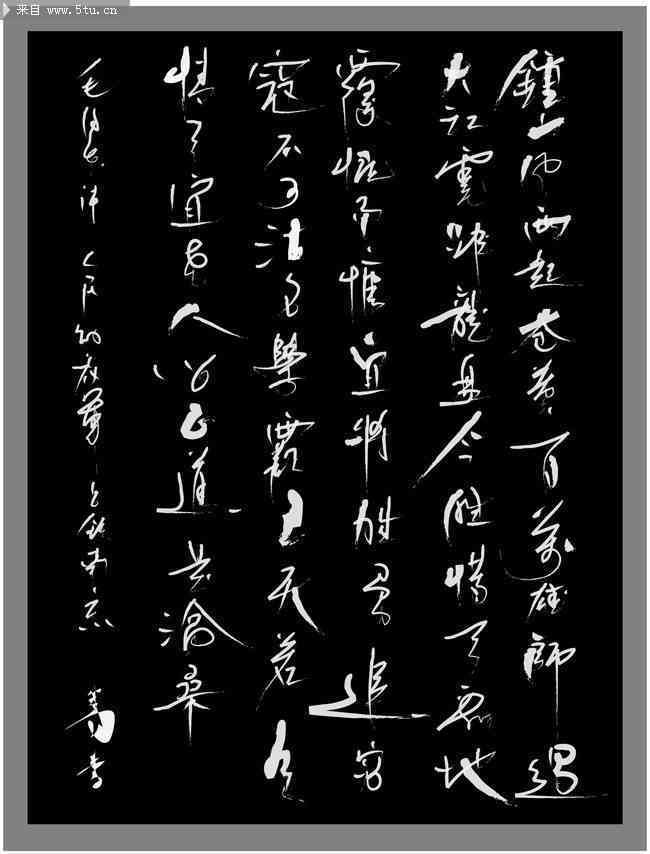 来自 www.5tu.cn
鍾山风雨起苍黄百萬雄師過
大江虎踞龍盘今胜惜天翻地
覆慨而慷宜將胜勇追穷
寇不可沽名學霸王天若有
情天宜老人间正道是滄桑
毛泽东诗 人民解放军占领南京 書